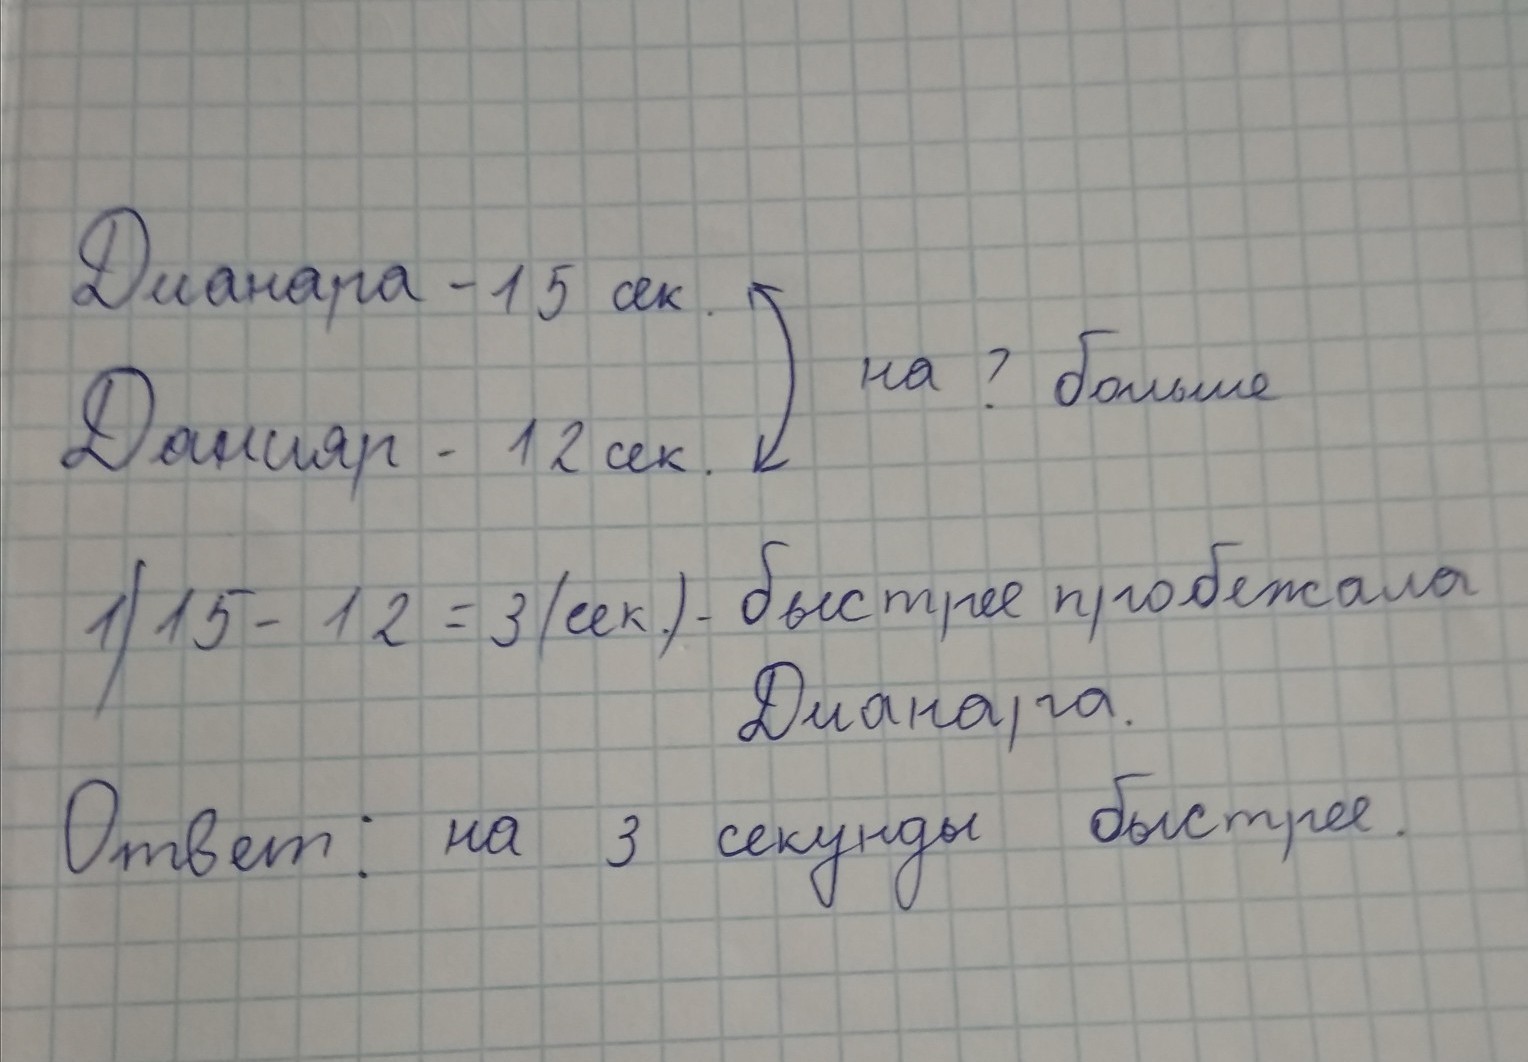 Дианара - 15 сек.
на ? больше
Данияр - 12 сек.
1) 15 - 12 = 3 (сек.) - быстрее пробежала
Дианара.
Ответ: на 3 секунды быстрее.